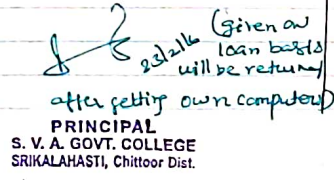 (Given on
23/2/16 loan basis
will be returned
after getting own computers)
PRINCIPAL
S. V. A. GOVT. COLLEGE
SRIKALAHASTI, Chittoor Dist.